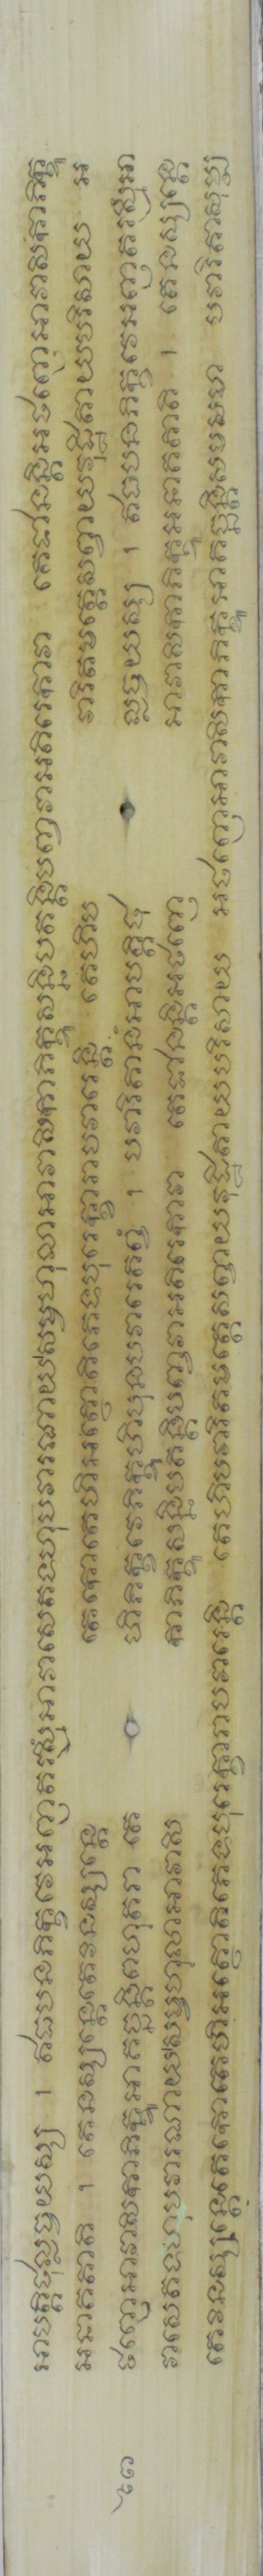 អាបត្តិថុល្លច្ចយស្ស ។ ឥធបនភិក្ខវេអញ្ញតរស្មិំអាវាសេតទហុបវារណាយសម្ពហុលាអាវាសិកាភិក្ខូសន្និបតន្តិបញ្ចវាអតិរេកាវា តេជានន្តិអថញ្ញេអាវាសិកាភិក្ខូ
អនាគតាតិ ។ តេនស្សន្តេតេវិនស្សន្តេ តេកោតេហិអត្ថោតិភេទបុរេក្ខារាបវារេន្តិ តេហិប វារិតមត្តេសព្វាយវុដ្ឋិតាយបរិសាយ អ
ថញ្ញេអាវាសិកាភិក្ខូអាគច្ឆន្តិពហុតរា តេ ហិភិក្ខវេភិក្ខូហិបុនបវារេតព្វំ ។ បវារិតានំអាបត្តិថុ ល្លច្ចយស្ស ។ ឥធបនភិក្ខវេអញ្ញតរស្មិំអា
វាសេតទហុបវារណាយសម្ពហុលាអាវាសិ កាភិក្ខូសន្និបតន្តិបញ្ចវាអតិរេកាវា តេជានន្តិអថញ្ញេ អាវាសិកាភិក្ខូអនាគតាតិ ។ តេនស្សន្តេ
តេវិនស្សន្តេតេកោតេហិអត្ថោតិភេទបុរេក្ខារាបវារេន្តិ តេហិបវារិតមត្តេសព្វាយវុដ្ឋិតាយបរិសាយ អថញ្ញេអាវាសិកាភិក្ខូអាគច្ឆន្តិសមសមា បវារិតាសុប្ប